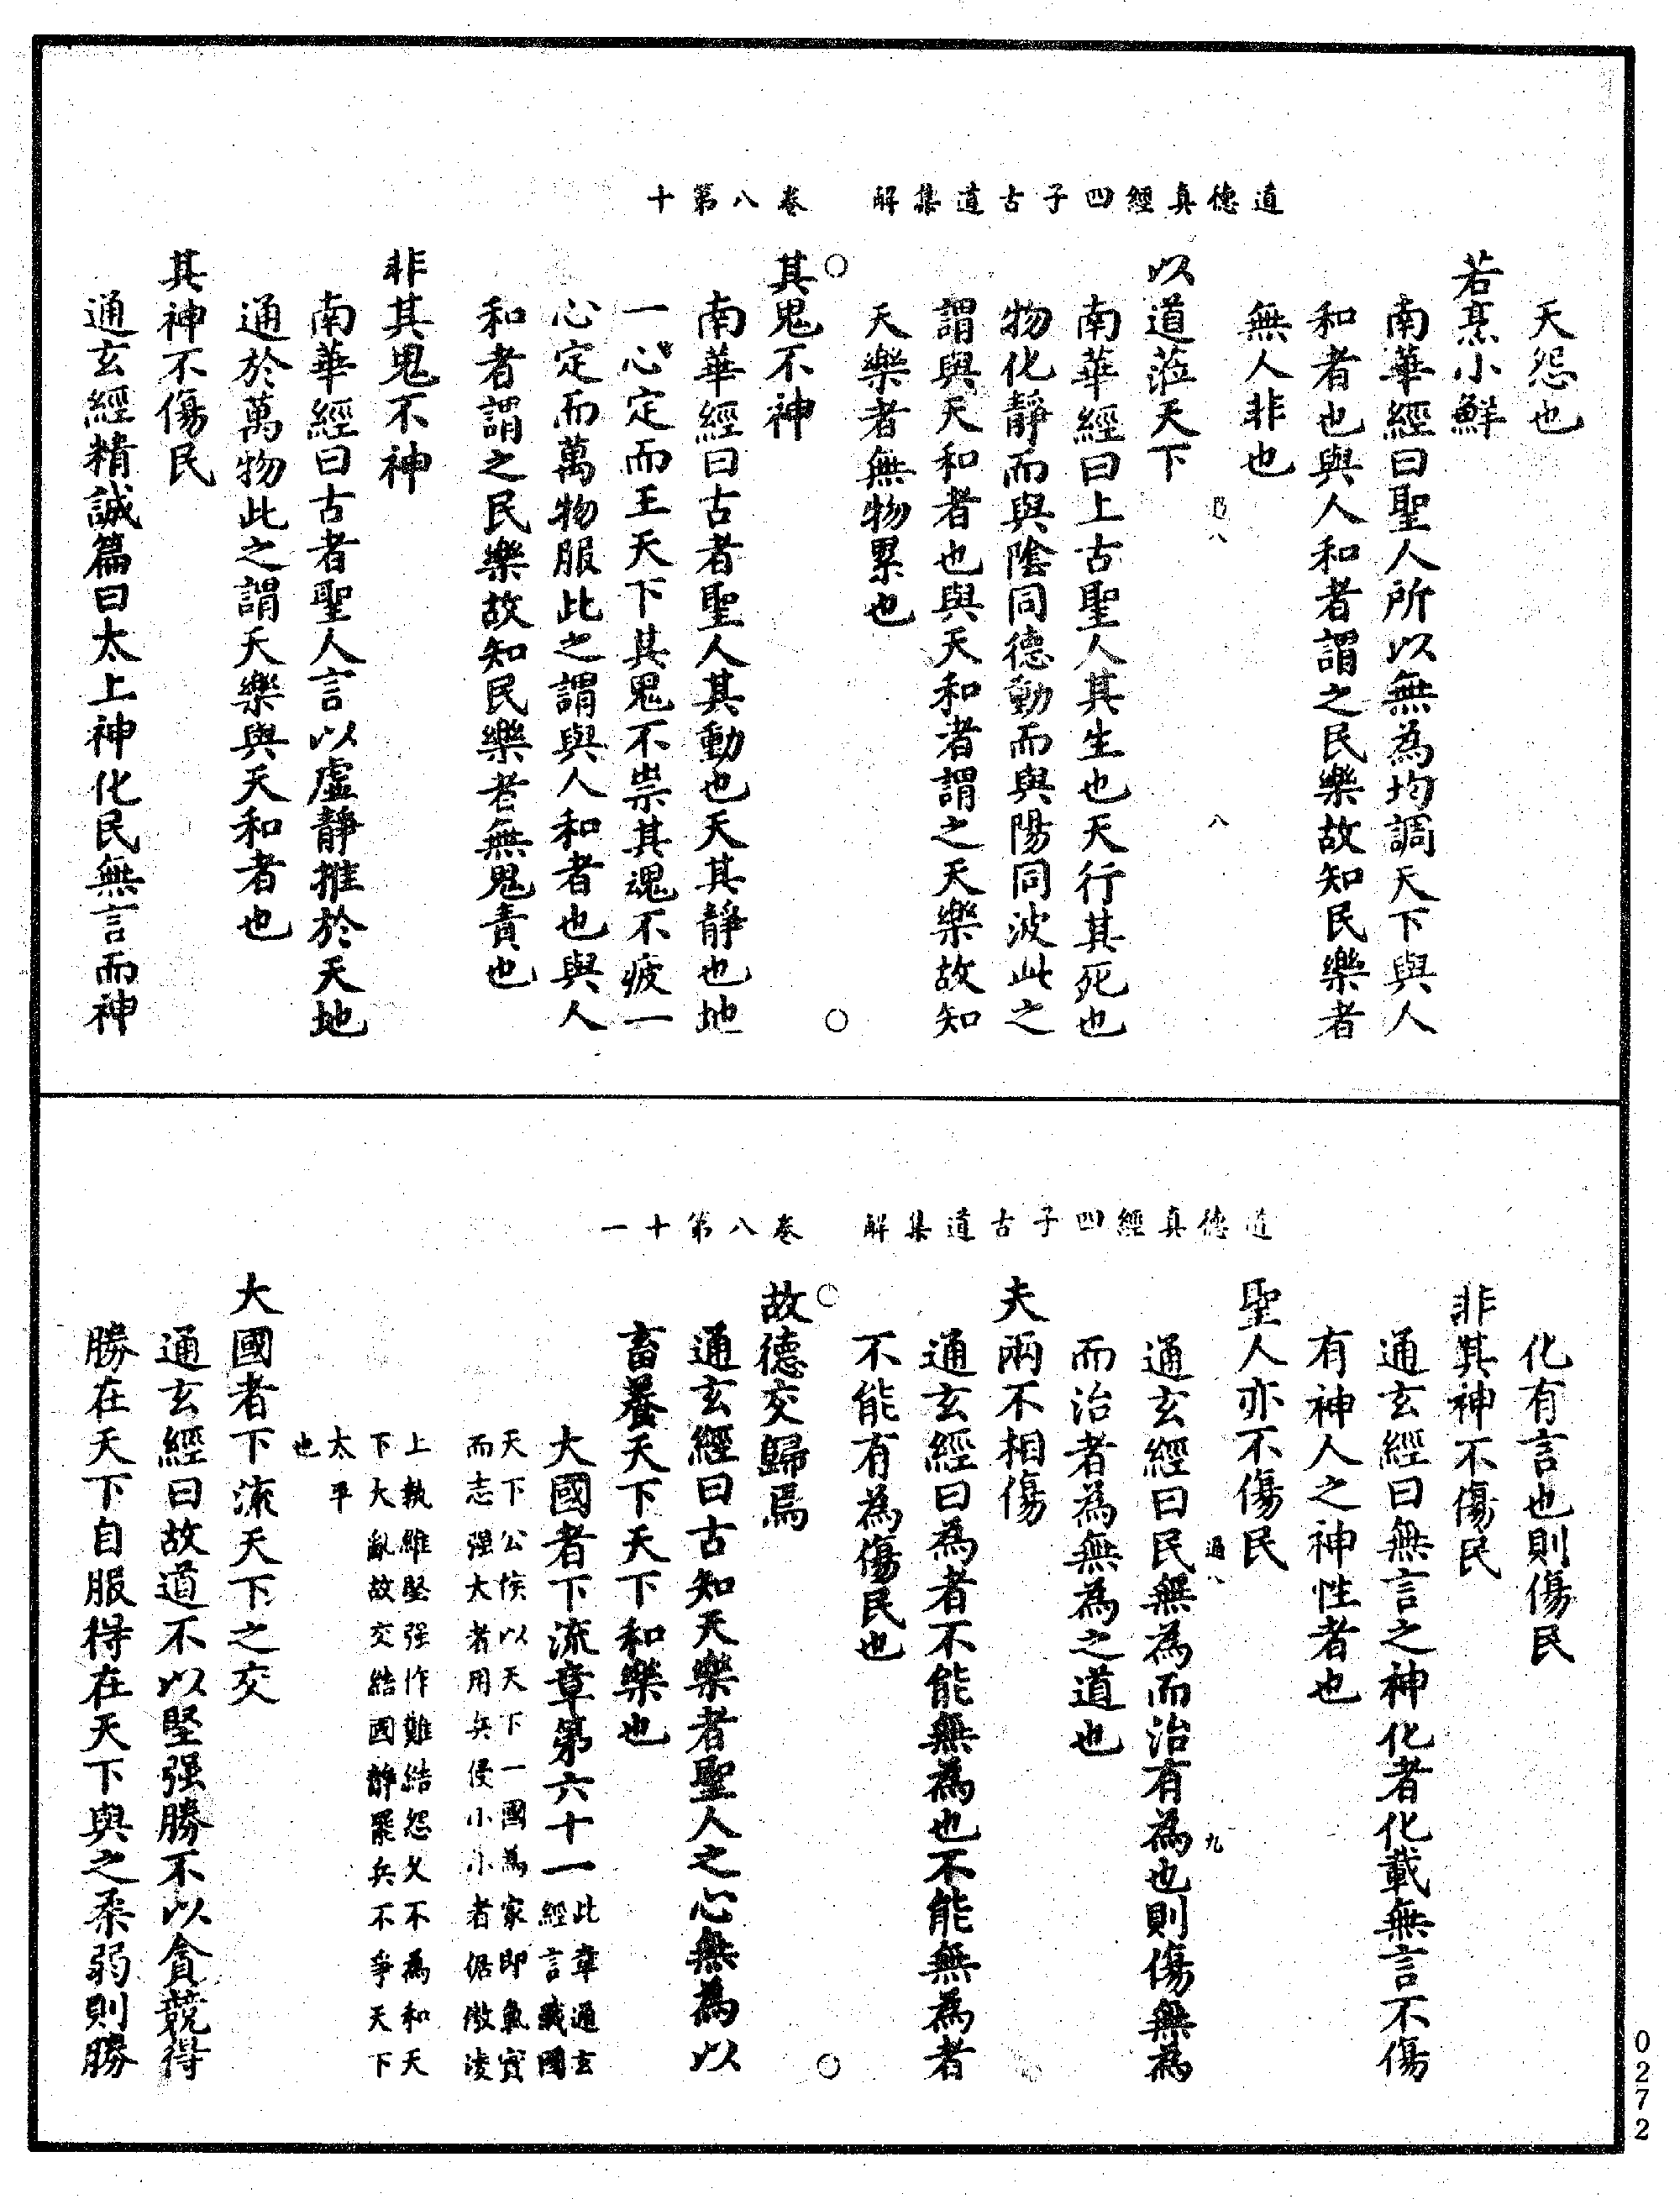 道德真經四子古道集解　卷八第十
天怨也
若烹小鮮
南華經曰聖人所以無為均調天下與人
和者也與人和者謂之民樂故知民樂者
無人非也
八
以道蒞天下
南華經曰上古聖人其生也天行其死也
物化靜而與陰同德動而與陽同波此之
謂與天和者也與天和者謂之天樂故知
天樂者無物累也
○　○
其鬼不神
南華經曰古者聖人其動也天其靜也地
一心定而王天下其鬼不祟其魂不疲一
心定而萬物服此之謂與人和者也與人
和者謂之民樂故知民樂者無鬼責也
非其鬼不神
南華經曰古者聖人言以虛靜推於天地
通於萬物此之謂天樂與天和者也
其神不傷民
通玄經精誠篇曰太上神化民無言而神
道德真經四子古道集解　卷八第十一
化有言也則傷民
非其神不傷民
通玄經曰無言之神化者化載無言不傷
有神人之神性者也
聖人亦不傷民
過八　九
通玄經曰民無為而治有為也則傷無為
而治者為無為之道也
夫兩不相傷
通玄經曰為者不能無為也不能無為者
不能有為傷民也
○　○
故德交歸焉
通玄經曰古知天樂者聖人之心無為以
畜養天下天下和樂也
大國者下流章第六十一此章通玄經言藏國
天下公侯以天下一國為家即氣實
而志强大者用兵侵小小者倨傲凌
上執雖堅强作難結怨父不為和天
下大亂故交結因靜罷兵不爭天下
太平
也
大國者下流天下之交
通玄經曰故道不以堅强勝不以貪競得
勝在天下自服得在天下與之柔弱則勝
0272